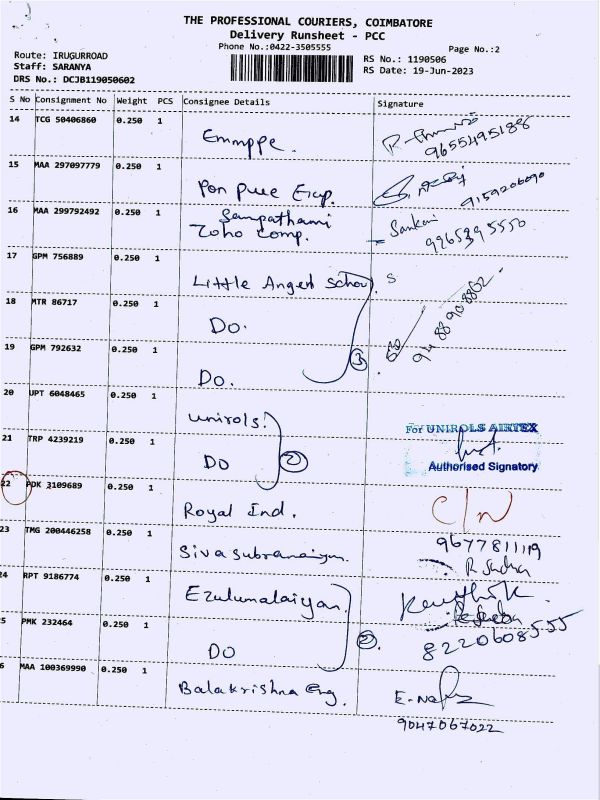 THE PROFESSIONAL COURIERS, COIMBATORE
Delivery Runsheet - PCC
Phone No.:0422-3505555
Page No.:2
Route: IRUGURROAD
Staff: SARANYA
DRS No.: DCJB119050602
RS No.: 1190506
RS Date: 19-Jun-2023
S No Consignment No Weight PCS Consignee Details Signature
14 TCG 50406860 0.250 1
Emmppe.
9655495188
15 MAA 297097779 0.250 1
Pon pure Exp.
9159206090
16 MAA 299792492 0.250 1
Sampathami
Zoho Comp.
Sankari
9965395550
17 GPM 756889 0.250 1
Little Angel School. S
18 MTR 86717 0.250 1
Do.
9488908862
19 GPM 792632 0.250 1
3
Do.
20 UPT 6048465 0.250 1
Unirols.
For UNIROLS AIRTEX
21 TRP 4239219 0.250 1
Do 2
Authorised Signatory
22 PDK 3109689 0.250 1
Royal Ind. C/N
23 TMG 200446258 0.250 1
Siva Subramaiyam.
9677811119
24 RPT 9186774 0.250 1
Ezulumalaiyan
5 PMK 232464 0.250 1
Do 2
8220608555
6 MAA 100369990 0.250 1
Balakrishna Eng.
9047067022